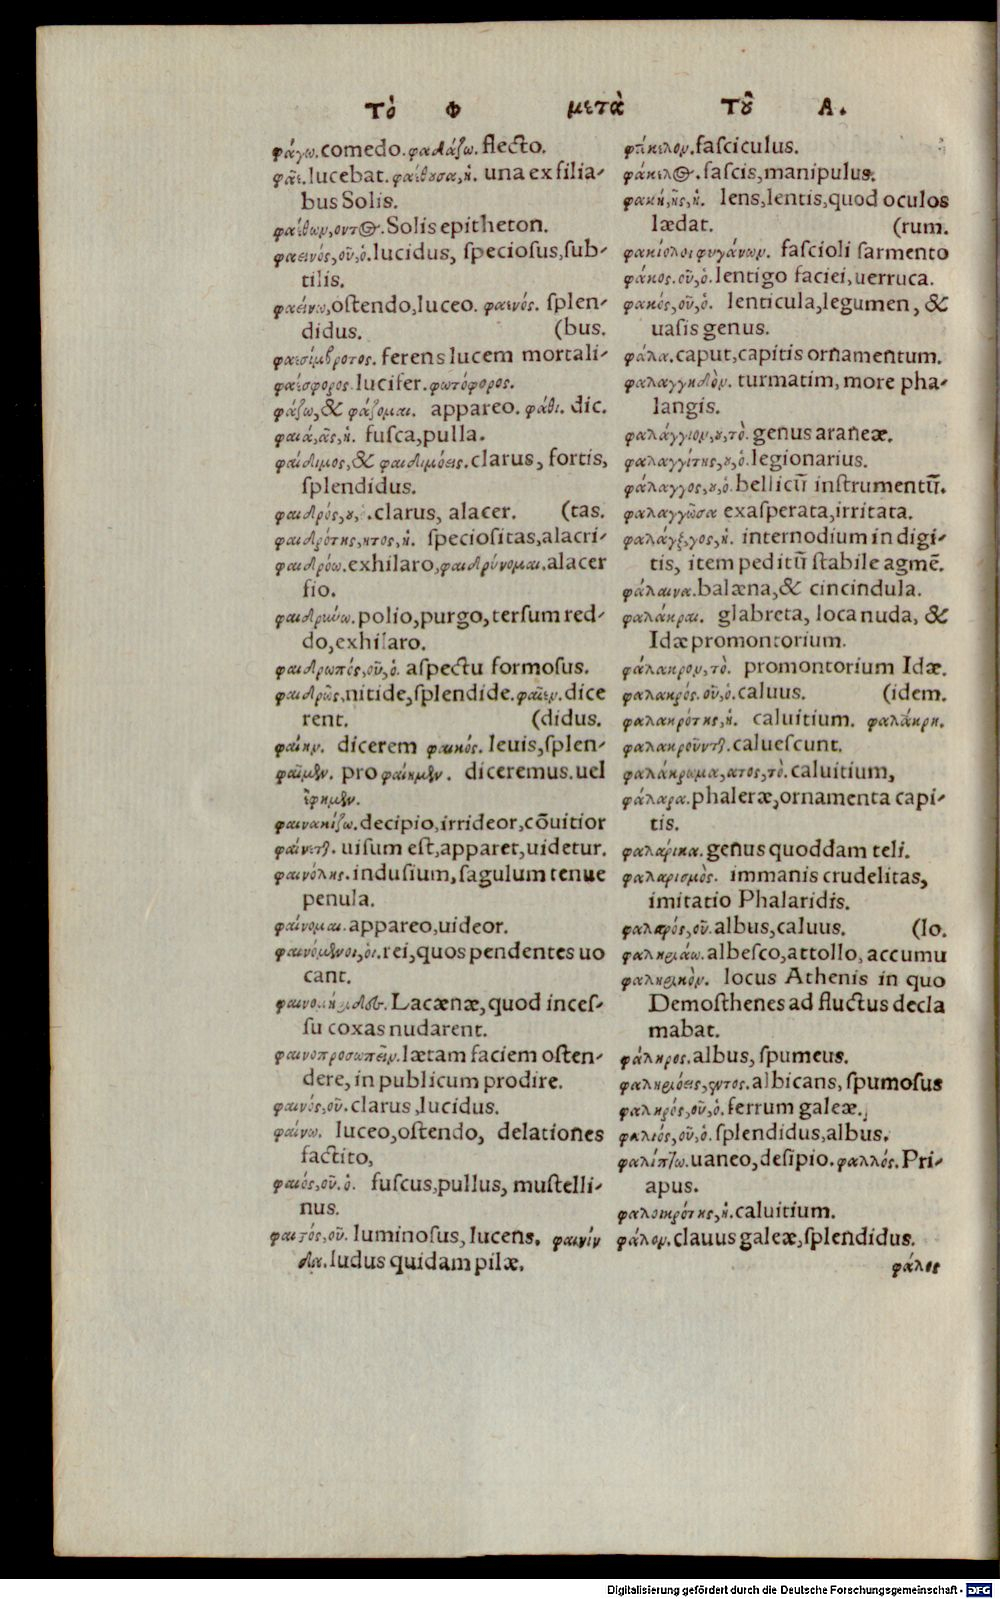 Τὸ Φ μετὰ Τοῦ Α.
φάγω. comedo. φαδάζω. flecto.
φάε. lucebat. φαέθουσα, ἡ. una ex filia-
bus Solis.
φαέθων, οντος. Solis epitheton.
φαεινός, οῦ, ὁ. lucidus, speciosus, sub-
tilis.
φαείνω, ostendo, luceo. φαεινός. splen-
didus. (bus.
φαεσίμβροτος. ferens lucem mortali-
φαέσφορος. lucifer. φωτόφορος.
φάζω, & φάζομαι. appareo. φάθι. dic.
φαιά, ᾶς, ἡ. fusca, pulla.
φαίδιμος, & φαιδιμόεις. clarus, fortis,
splendidus.
φαιδρός, clarus, alacer. (tas.
φαιδρότης, ητος, ἡ. speciositas, alacri-
φαιδρόω. exhilaro, φαιδρύνομαι. alacer
fio.
φαιδρύνω. polio, purgo, tersum red-
do, exhilaro.
φαιδρωπός, οῦ, ὁ. aspectu formosus.
φαιδρῶς, nitide, splendide. φαῖεν. dice
rent. (didus.
φαίην. dicerem φαικός. leuis, splen-
φαῖμεν. pro φαίημεν. diceremus. uel
ἴφημεν.
φαινακίζω. decipio, irrideor, cōuitior
φαίνεται. uisum est, apparet, uidetur.
φαινόλης. indusium, sagulum tenue
penula.
φαίνομαι. appareo, uideor.
φαινόμενοι, οἱ. rei, quos pendentes uo
cant.
Lacænæ, quod inces-
su coxas nudarent.
φαινοπροσωπεῖν. lætam faciem osten-
dere, in publicum prodire.
φαινός, οῦ. clarus, lucidus.
φαίνω. luceo, ostendo, delationes
factito,
φαιός, οῦ. ὁ. fuscus, pullus, mustelli-
nus.
φαιτός, οῦ. luminosus, lucens. φαινίν
δα. ludus quidam pilæ.
φάκελον. fasciculus.
φάκελος. fascis, manipulus.
φακή, ῆς, ἡ. lens, lentis, quod oculos
lædat. (rum.
φακίολοι φυγάνων. fascioli sarmento
φάκος. οῦ, ὁ. lentigo faciei, uerruca.
φακός, οῦ, ὁ. lenticula, legumen, &
uasis genus.
φάλα. caput, capitis ornamentum.
φαλαγγηδὸν. turmatim, more pha-
langis.
φαλάγγιον, ου, τὸ. genus araneæ.
φαλαγγίτης, ου, ὁ. legionarius.
φάλαγγος, ου, ὁ. bellicū instrumentū.
φαλαγγῶσα exasperata, irritata.
φαλάγξ, γος, ἡ. internodium in digi-
tis, item peditū stabile agmē.
φάλαινα. balæna, & cincindula.
φαλάκραι. glabreta, loca nuda, &
Idæ promontorium.
φάλακρον, τὸ. promontorium Idæ.
φαλακρός. οῦ, ὁ. caluus. (idem.
φαλακρότης, ἡ. caluitium. φαλάκρη.
φαλακροῦνται. caluescunt.
φαλάκρωμα, ατος, τὸ. caluitium,
φάλαρα. phaleræ, ornamenta capi-
tis.
φαλαρίκα. genus quoddam teli.
φαλαρισμὸς. immanis crudelitas,
imitatio Phalaridis.
φαλαρός, οῦ. albus, caluus. (lo.
φαληριάω. albesco, attollo, accumu
φαληρικὸν. locus Athenis in quo
Demosthenes ad fluctus decla
mabat.
φάληρος. albus, spumeus.
φαληριόεις, εντος. albicans, spumosus
φαληρός, οῦ, ὁ. ferrum galeæ.
φαλιός, οῦ, ὁ. splendidus, albus.
φαλίπτω. uaneo, desipio. φαλλός. Pri-
apus.
φαλοικρότης, ἡ. caluitium.
φάλον. clauus galeæ, splendidus.
φάλος
Digitalisierung gefördert durch die Deutsche Forschungsgemeinschaft - DFG